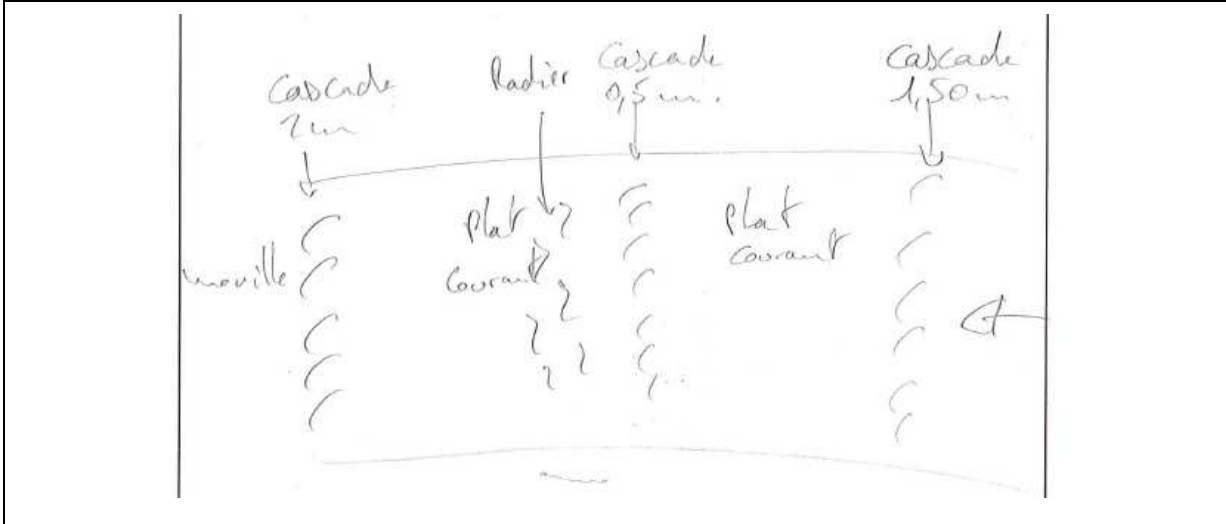 Cascade
2 m
Radier
Cascade
0,5 m.
Cascade
1,50 m
mouille
Plat
Courant
Plat
Courant